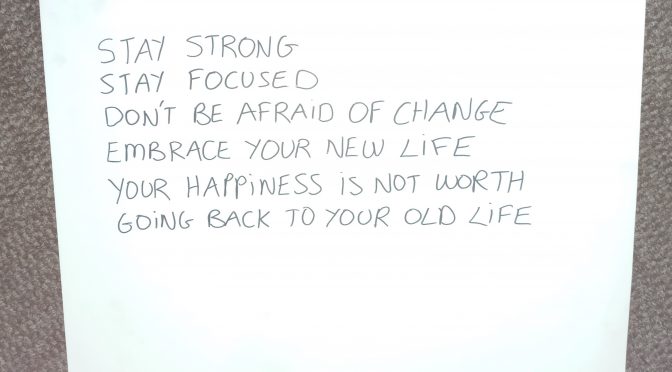 STAY STRONG
STAY FOCUSED
DON'T BE AFRAID OF CHANGE
EMBRACE YOUR NEW LIFE
YOUR HAPPINESS IS NOT WORTH
GOING BACK TO YOUR OLD LIFE